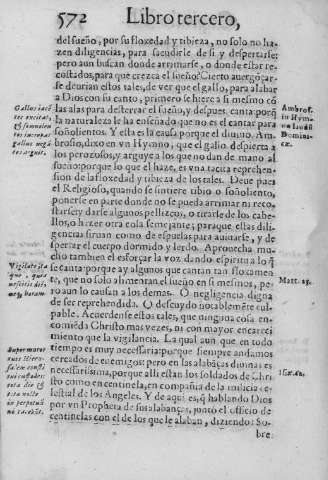 572 Libro tercero,
del sueño, por su floxedad y tibieza, no solo no ha-
zen diligencias, para sacudirle de si y despertarse:
pero aun buscan donde arrimarse, o donde estar re-
costados, para que crezca el sueño. Cierto auergõçar-
se deurian estos tales, de ver que el gallo, para alabar
a Dios con su canto, primero se hiere a si mesmo cõ
las alas para desterrar el sueño, y despues canta porq̃
la naturaleza le ha enseñado que no es el cantar para
soñolientos. Y esta es la causa porque el diuino Am-
brosio, dixo en vn Hymno, que el gallo despierta a
los perezosos, y arguye a los que no dan de mano al
sueño porque lo que el haze, es vna tacita reprehen-
sion de la floxedad y tibieza de los tales. Deue pues
el Religioso, quando se sintiere tibio o soñoliento,
ponerse en parte donde no se pueda arrimar ni reco-
starse y darse algunos pellizcos, o tirarse de los cabe-
llos, o hazer otra cosa semejante; para que estas dili-
gencias siruan como de espuelas para auiuarse, y de-
spertar el cuerpo dormido y lerdo. Aprouecha mu-
cho tambien el esforçar la voz dando espiritu a lo q̃
se canta porque ay algunos que cantan tan floxamen
te, que no solo alimentan el sueño en si mesmos, pe-
ro aun lo causan a los demas. O negligencia digna
de ser reprehendida. O descuydo notablemẽte cul-
pable. Acuerdense estos tales, que ninguna cosa en-
comiẽda Christo mas vezes, ni con mayor encareci
miento que la vigilancia. La qual aun que en todo
tiempo es muy necessaria: porque siempre andamos
cercados de enemigos: pero en las alabãças diuinas es
necessarissima, porque alli estan los soldados de Chri
sto como en centinela, en compañia de la milicia ce-
lestial de los Angeles. Y de aqui es, q̃ hablando Dios
por vn Propheta de sus alabanças, juntó el officio de
centinelas con el de los que le alaban, diziendo: So-
bre
Gallus iacẽ
tes excitat,
& somnolen
tos increpat
gallus negã
tes arguit.
Vigilate ita
que, quia
nescitis diẽ
neq; horam.
Super muros
tuos Hieru-
salem consti
tui custodes:
tota die &
tota nocte
in perpetuũ
nõ tacebũt.
Ambros.
in Hym-
no laudũ
Domini-
cæ.
Matt. 25.
Isai. 62.